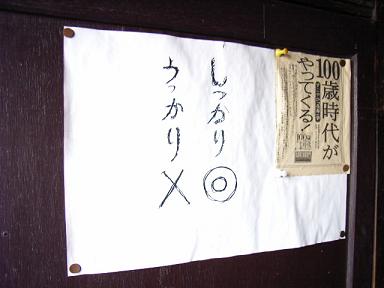 100歳時代が
やってくる!
しっかり◎
うっかり×